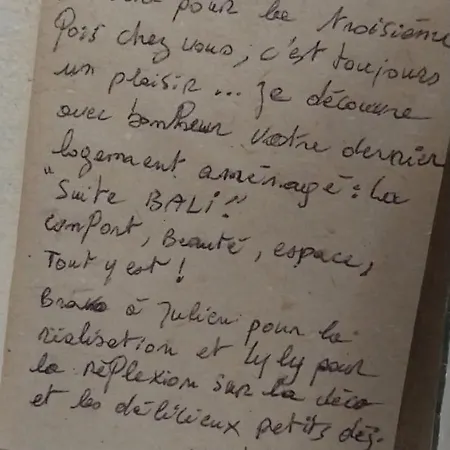 pour la troisième
Fois chez vous, c'est toujours
un plaisir... Je découvre
avec bonheur votre dernier
logement aménagé : La
"Suite BALI".
Confort, Beauté, espace,
Tout y est !
Bravo à Julien pour la
réalisation et Lyly pour
la réflexion sur la déco
et les délicieux petits déj.